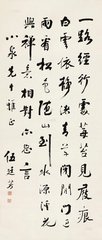 一路經行處莓苔見履痕
白雲依靜渚芳草閉閒門過
雨看松色隨山到水源溪花
與禪意相對亦忘言
小泉先生雅正
伍廷芳